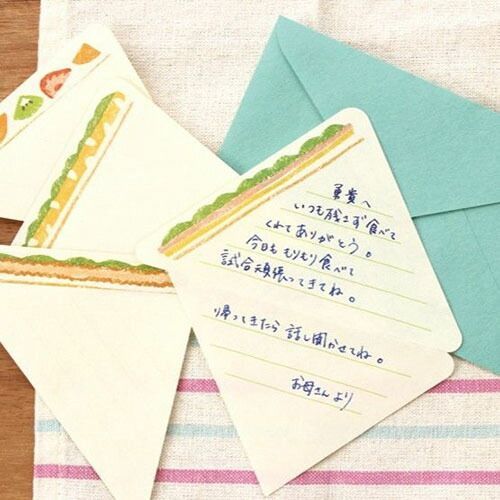 勇貴へ
いつも残さず食べて
くれてありがとう。
今日ももりもり食べて
試合頑張ってきてね。
帰ってきたら話し聞かせてね。
お母さんより